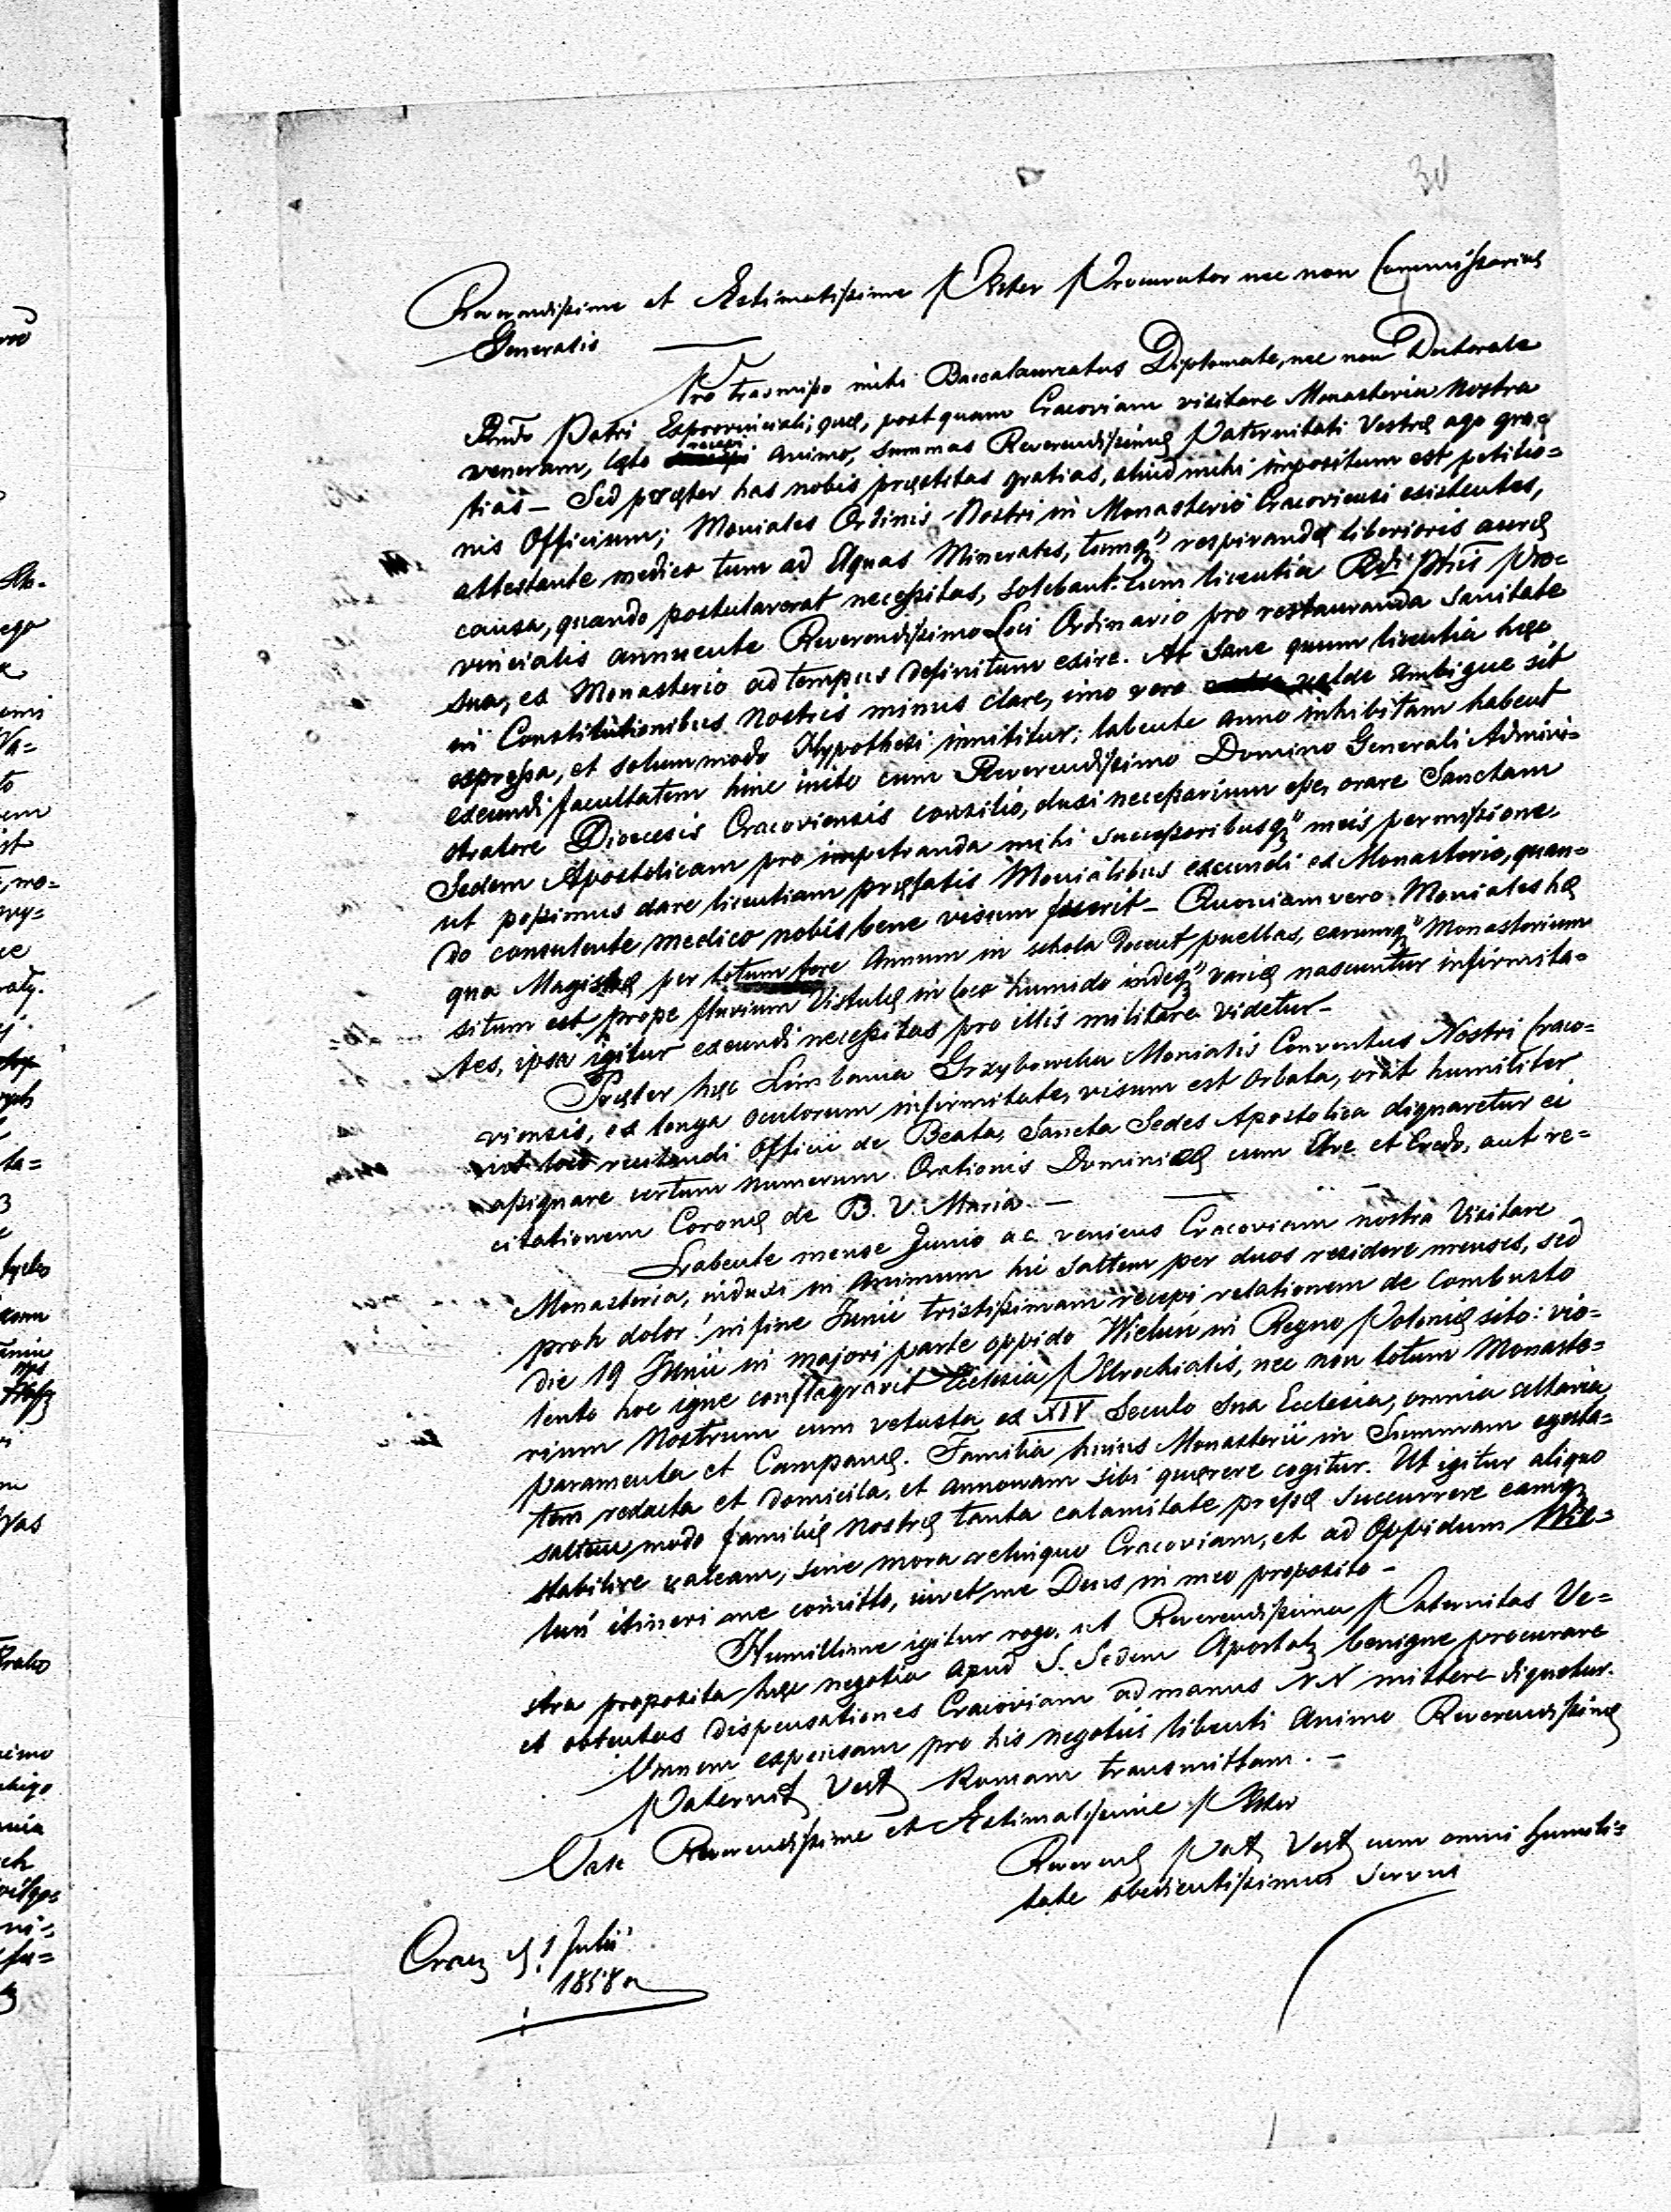 30
Reverendissime et Æstimatissime Pater Procurator nec non Commissarius
Generalis —
Pro trasmisso mihi Baccalaureatus Diplomate, nec non Doctorale
Rndo Patri Exprovinciali; quæ, postquam Cracoviam visitare Monasteria Nostra
veneram, læto recepi animo, summas Reverendissimæ Paternitati Vestræ ago gra=
tias — Sed præter has nobis præstitas gratias, aliud mihi impositum est petitio=
nis Officium; Moniales Ordinis Nostri in Monasterio Cracoviensi existentes,
attestante medico tum ad Aquas Minerales, tumq respirandæ liberioris auræ
causa, quando postulaverat necessitas, solebant cum licentia Rdi Ptris Pro=
vincialis annuente Reverendissimo Loci Ordinario pro restauranda sanitate
sua, ex Monasterio ad tempus definitum exire. At sane quum licentia hæc
in Constitutionibus Nostris minus clare, imo vero valde ambigue sit
expressa, et solummodo Hypothesi innititur; labente anno inhibitam habent
exeundi facultatem hinc inito cum Reverendissimo Domino Generali Admini=
stratore Dioecesis Cracoviensis consilio, duxi necessarium esse, orare Sanctam
Sedem Apostolicam pro impetranda mihi successoribusq meis permissione
ut possimus dare licentiam præfatis Monialibus exeundi ex Monasterio, quan=
do consulente medico nobis bene visum fuerit — Quoniam vero Moniales hæ
qua Magistræ per totum fere Annum in schola docent puellas, earumq Monasterium
situm est prope fluvium Vistulæ in loco humido indeq variæ nascuntur infirmita=
tes, ipsa igitur exeundi necessitas pro illis militare videtur —
Præter hæc Limbania Grzybowska Monialis Conventus Nostri Craco=
viensis, ex longa oculorum infirmitate, visum est orbata, orat humiliter
ut loco recitandi Officii de Beata, Sancta Sedes Apostolica dignaretur ei
assignare certum numerum Orationis Dominicæ cum Ave et Credo, aut re=
citationem Coronæ de B. V. Maria. —
Labente mense Junio a c veniens Cracoviam nostra Visitare
Monasteria, induxi in animum hic saltem per duos residere menses, sed
proh dolor! in fine Junii tristissimam recepi relationem de combusto
die 19 Junii in majori parte oppido Wieluń in Regno Poloniæ sito: vio=
lento hoc igne conflagravit Ecclesia Parochialis, nec non totum Monaste=
rium Nostrum cum vetusta ex XIV Seculo sua Ecclesia, omnia altaria,
paramenta et Campanæ. Familia huius Monasterii in Summam egesta=
tem redacta et domicila, et annonam sibi quærere cogitur. Ut igitur aliquo
saltem modo familiæ nostræ tanta calamitate pressæ succurrere eamq
stabilire valeam, sine mora relinquo Cracoviam, et ad Oppidum Wie=
luń itineri me comitto, iuvet me Deus in meo proposito —
Humillime igitur rogo, ut Reverendissima Paternitas Ve=
stra proposita hæc negotia apud S. Sedem Apostol benigne procurare
et obtentas dispensationes Cracoviam ad manus NN mittere dignetur.
Omnem expensam pro his negotiis libenti animo Reverendissimæ
Paternit Vest Romam transmittam. —
Vale Reverendissime et Æstimatissime Pater
Reverend Pat Vest cum omni humili=
tate obedientissimus servus
Crac d 1 Julii
1858 a